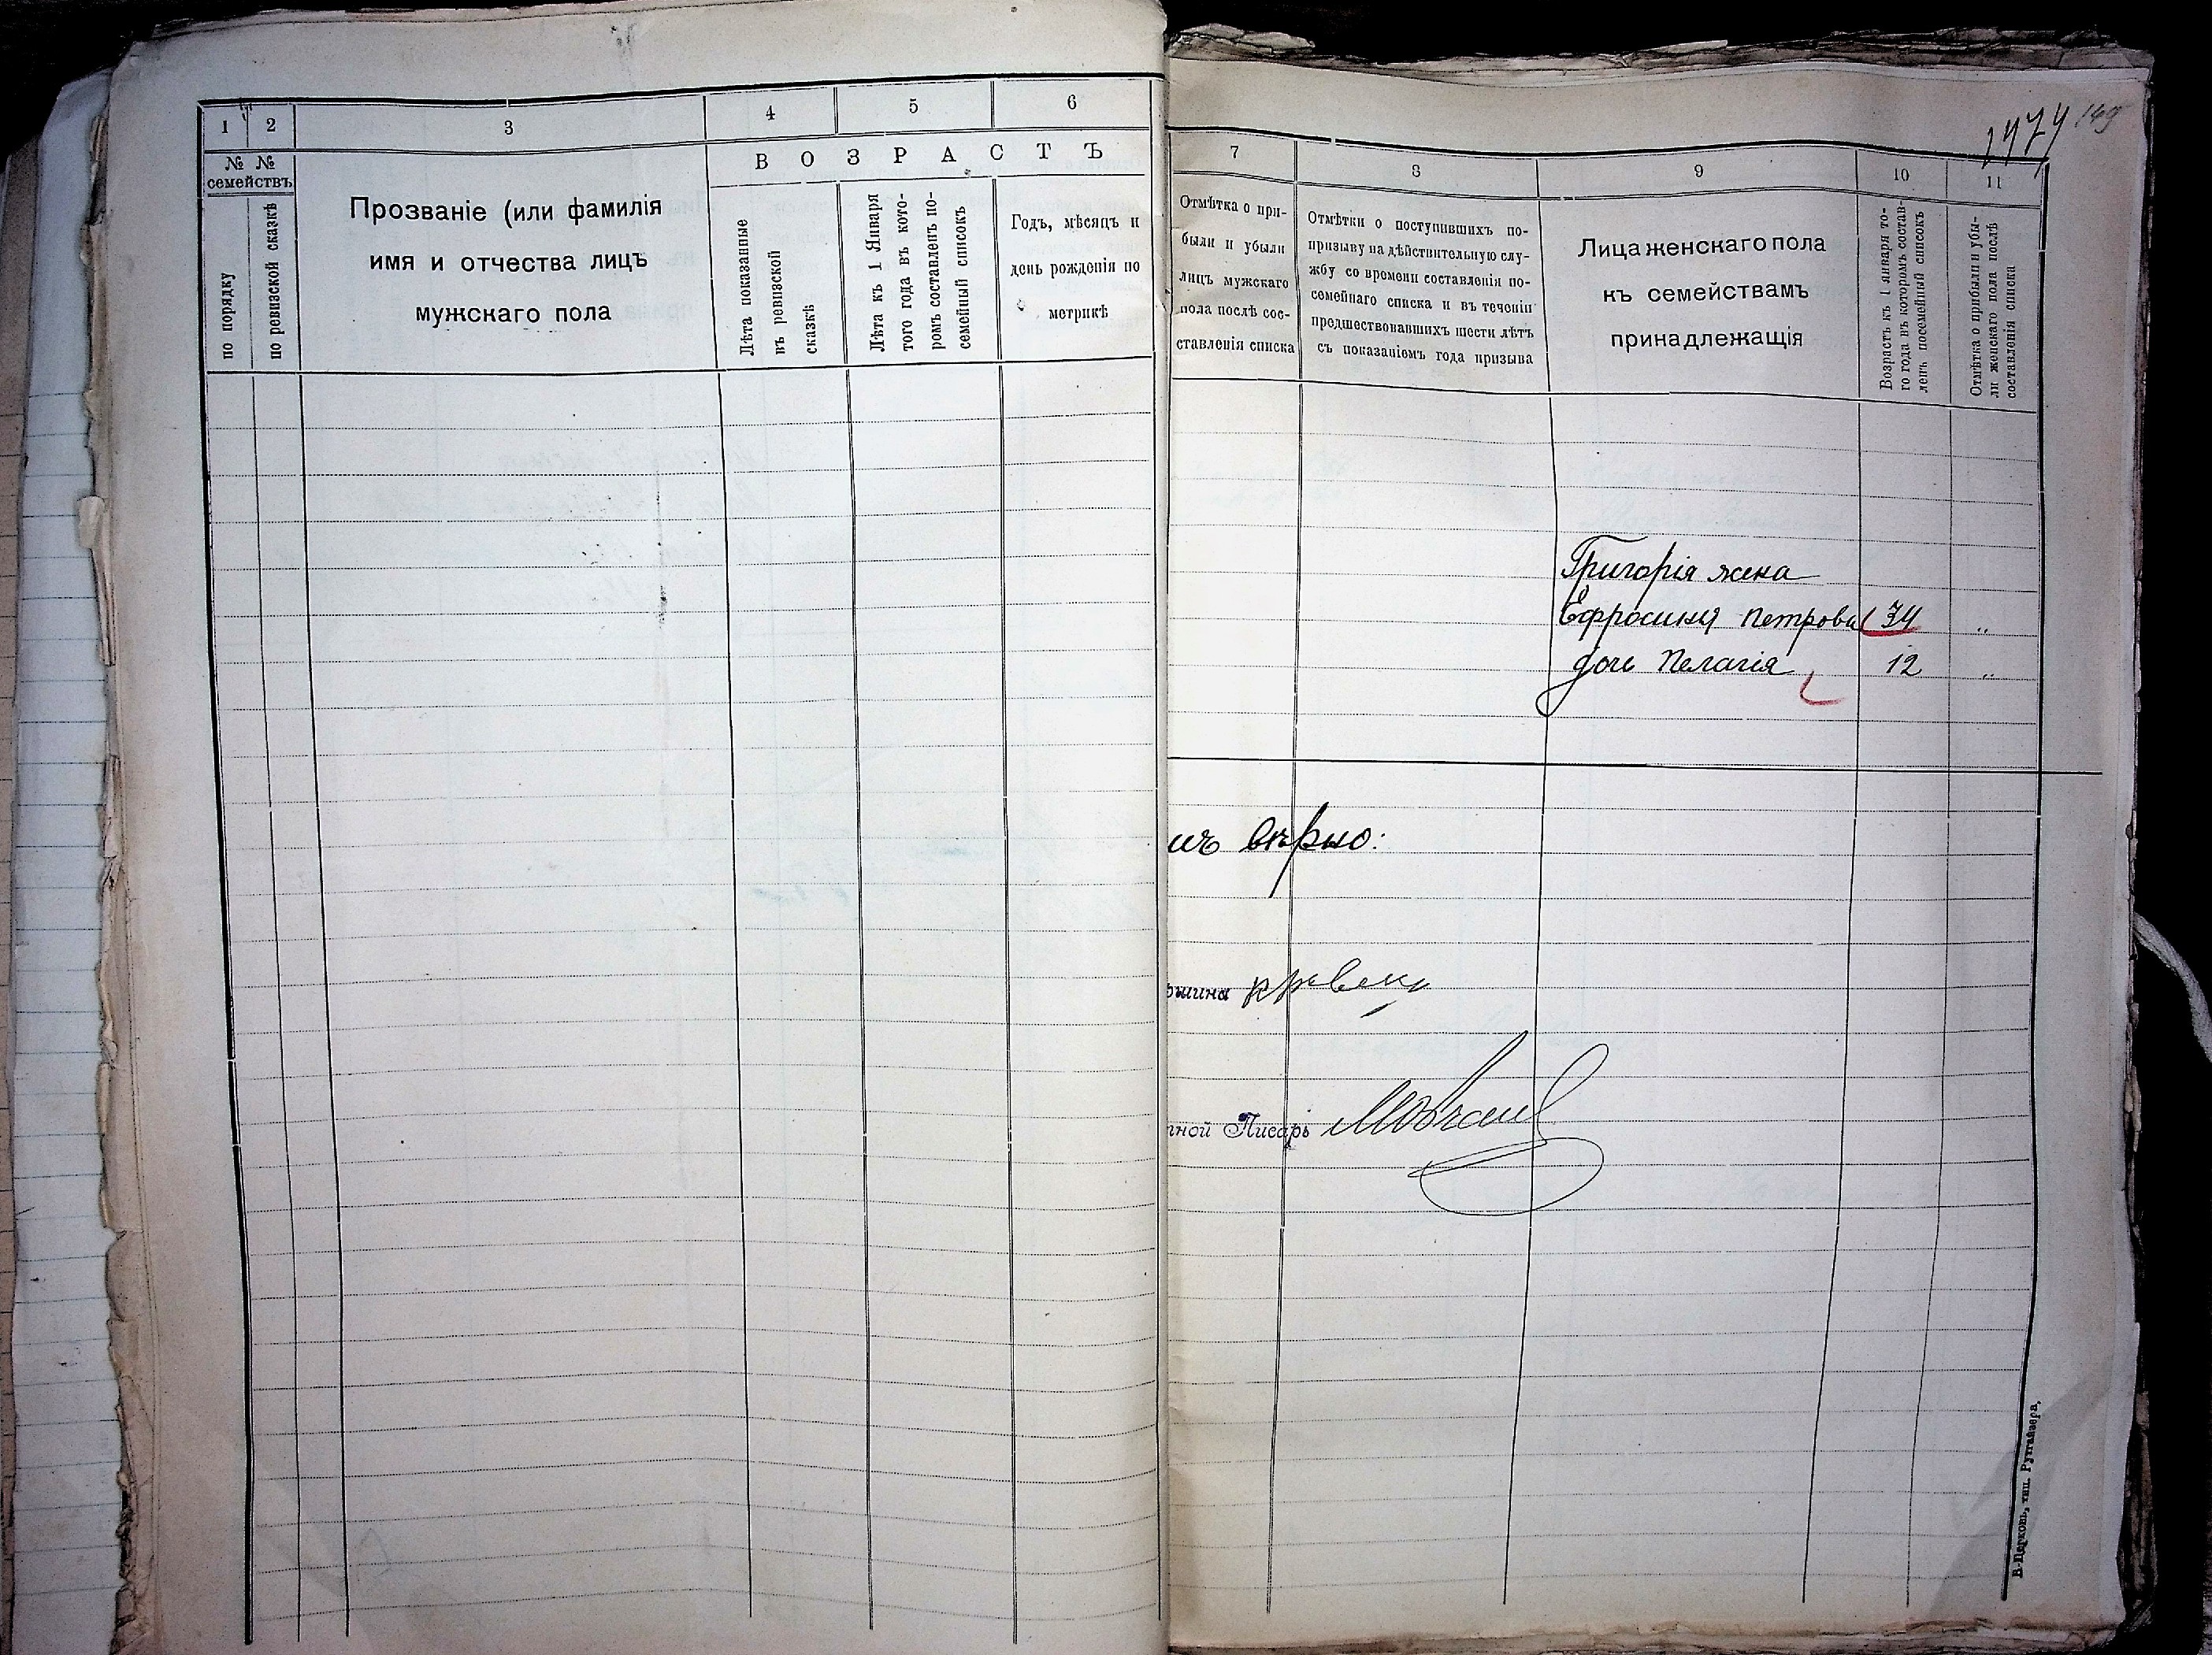 1
2
3
4
5
6
№ №
семействъ
по порядку
по ревизской сказкѣ
Прозваніе (или фамилія
имя и отчества лицъ
мужскаго пола
ВОЗРАСТЪ
Лѣта показанные
въ ревизской
сказкѣ
Лѣта къ 1 Января
того года въ кото-
ромъ составленъ по-
семейный списокъ
Годъ, мѣсяцъ и
день рожденія по
метрикѣ
149
7
8
9
10
11
Отмѣтка о при-
были и убыли
лицъ мужскаго
пола послѣ сос-
ставленія списка
Отмѣтки о поступившихъ по-
призыву на дѣйствительную слу-
жбу со времени составленія по-
семейнаго списка и въ теченіи
предшествовавшихъ шести лѣтъ
съ показаніемъ года призыва
Лица женскаго пола
къ семействамъ
принадлежащія
Возрастъ къ 1 января то-
го года въ которомъ состав-
ленъ посемейный списокъ
Отмѣтка о прибыли и убы-
ли женскаго пола послѣ
составленія списка
Григорія жена
Ефросинія Петрова 34 „
дочь Пелагія 12 „
вѣрно:
ршина
ной Писарь
Б-Церковь, тип. Рутгайзера,